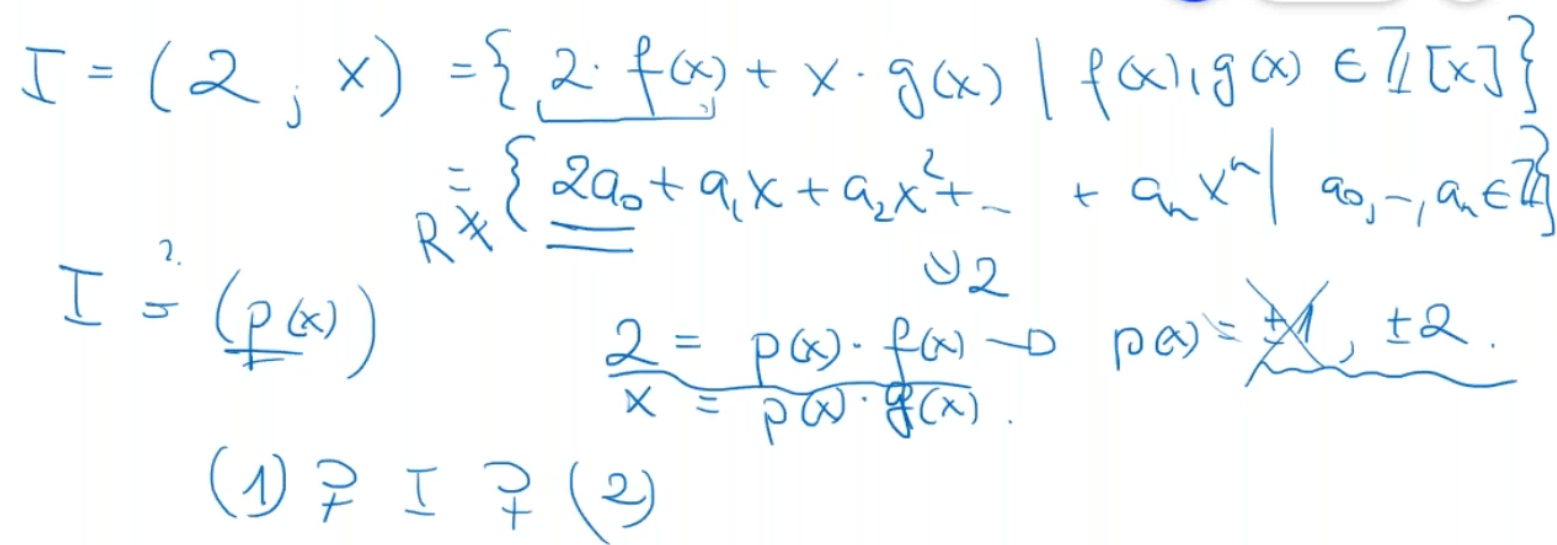 I = (2, x) = { 2·f(x) + x·g(x) | f(x), g(x) ∈ ℤ[x] }
R ≠ = { 2a₀ + a₁x + a₂x² + … + aₙxⁿ | a₀, …, aₙ ∈ ℤ }
∪ 2
I ?= (p(x))
2 = p(x)·f(x) → p(x) = ±1, ±2.
x = p(x)·g(x).
(1) ⊋ I ⊋ (2)